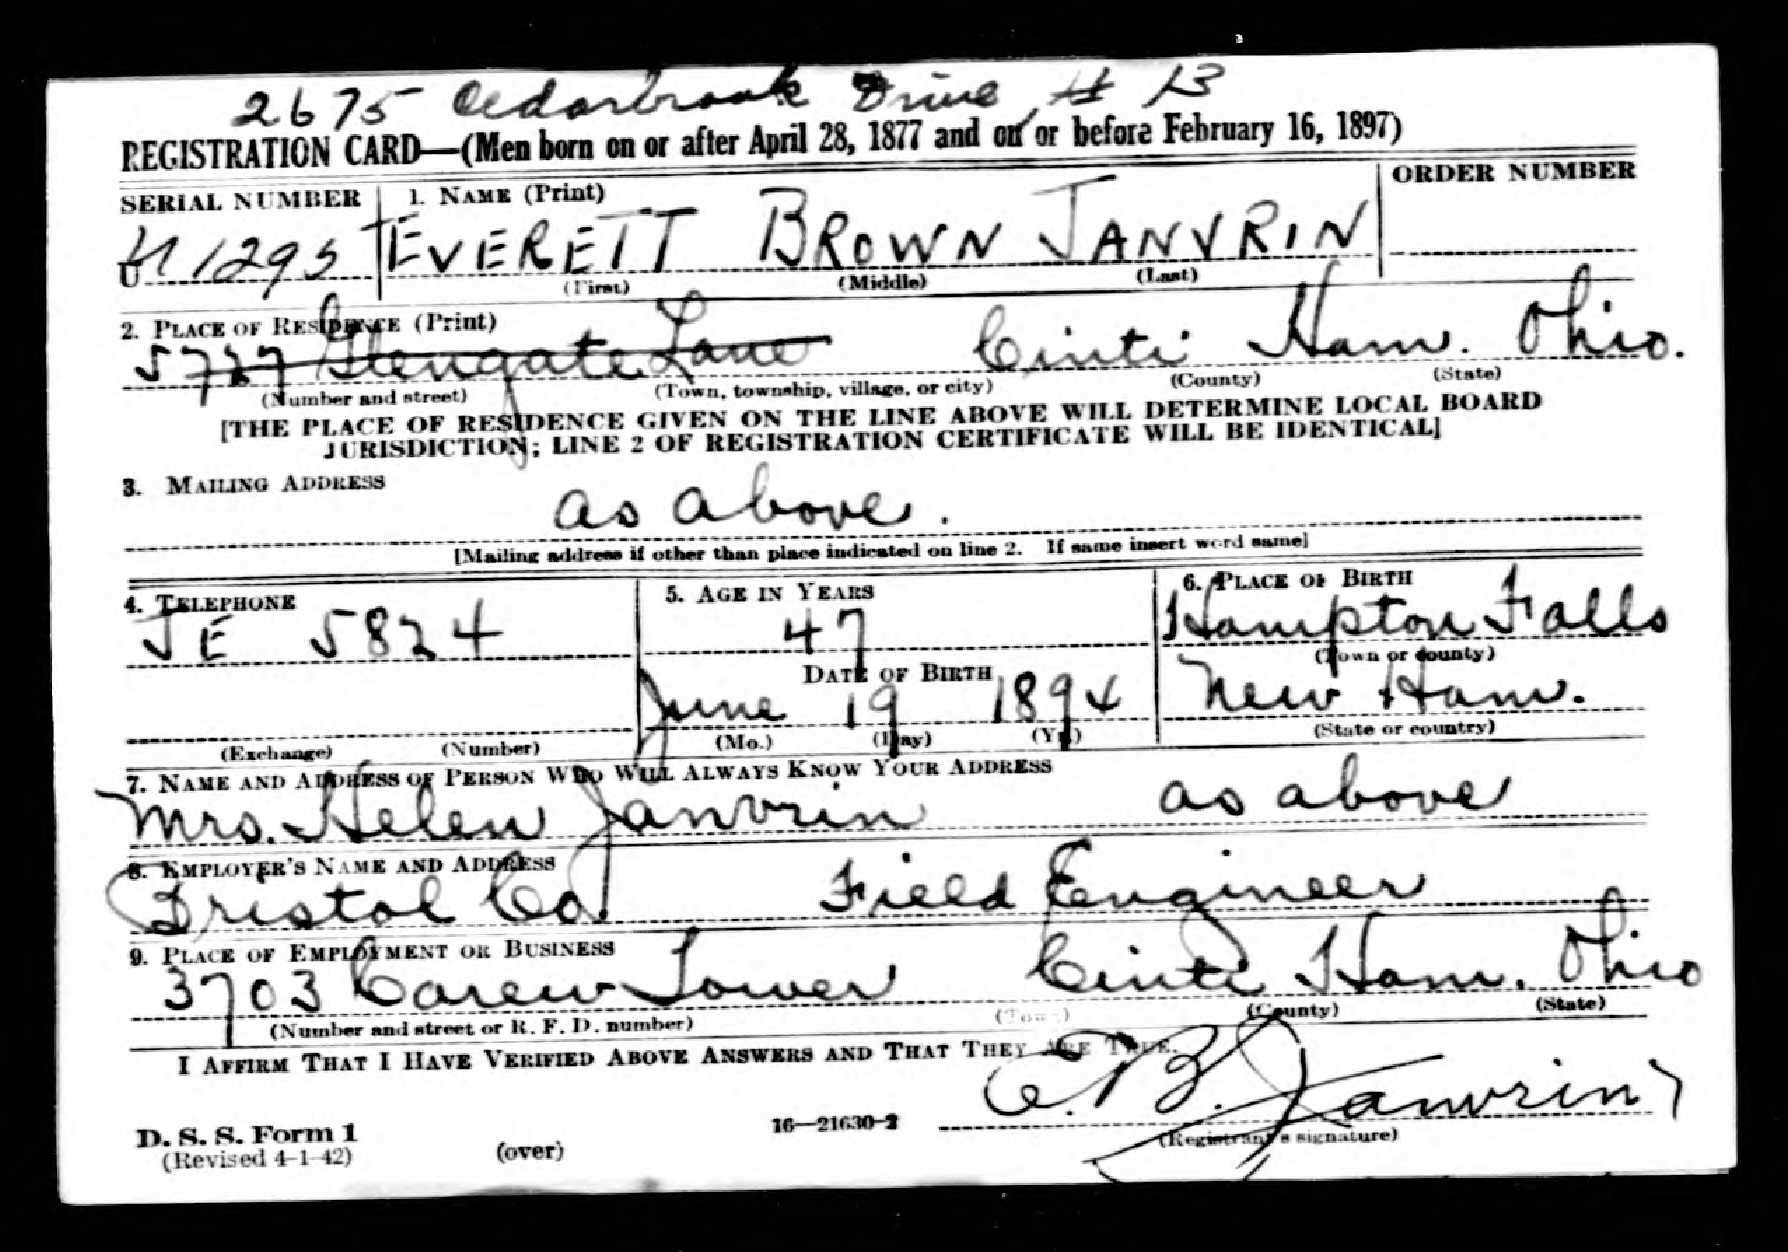 2675 Cedarbrook Drive # 13
REGISTRATION CARD—(Men born on or after April 28, 1877 and on or before February 16, 1897)
SERIAL NUMBER
1. NAME (Print)
ORDER NUMBER
U 1295
EVERETT BROWN JANVRIN
(First) (Middle) (Last)
2. PLACE OF RESIDENCE (Print)
5727 Glengate Lane Cinti Ham. Ohio.
(Number and street) (Town, township, village, or city) (County) (State)
[THE PLACE OF RESIDENCE GIVEN ON THE LINE ABOVE WILL DETERMINE LOCAL BOARD
JURISDICTION; LINE 2 OF REGISTRATION CERTIFICATE WILL BE IDENTICAL]
3. MAILING ADDRESS
as above.
[Mailing address if other than place indicated on line 2. If same insert word same]
4. TELEPHONE
JE 5824
(Exchange) (Number)
5. AGE IN YEARS
47
DATE OF BIRTH
June 19 1894
(Mo.) (Day) (Yr.)
6. PLACE OF BIRTH
Hampton Falls
(Town or county)
New Ham.
(State or country)
7. NAME AND ADDRESS OF PERSON WHO WILL ALWAYS KNOW YOUR ADDRESS
Mrs. Helen Janvrin as above
8. EMPLOYER'S NAME AND ADDRESS
Bristol Co. Field Engineer
9. PLACE OF EMPLOYMENT OR BUSINESS
3703 Carew Tower Cinti Ham. Ohio
(Number and street or R. F. D. number) (Town) (County) (State)
I AFFIRM THAT I HAVE VERIFIED ABOVE ANSWERS AND THAT THEY ARE TRUE.
E. B. Janvrin
D. S. S. Form 1
(Revised 4-1-42)
(over)
16—21630-2
(Registrant's signature)